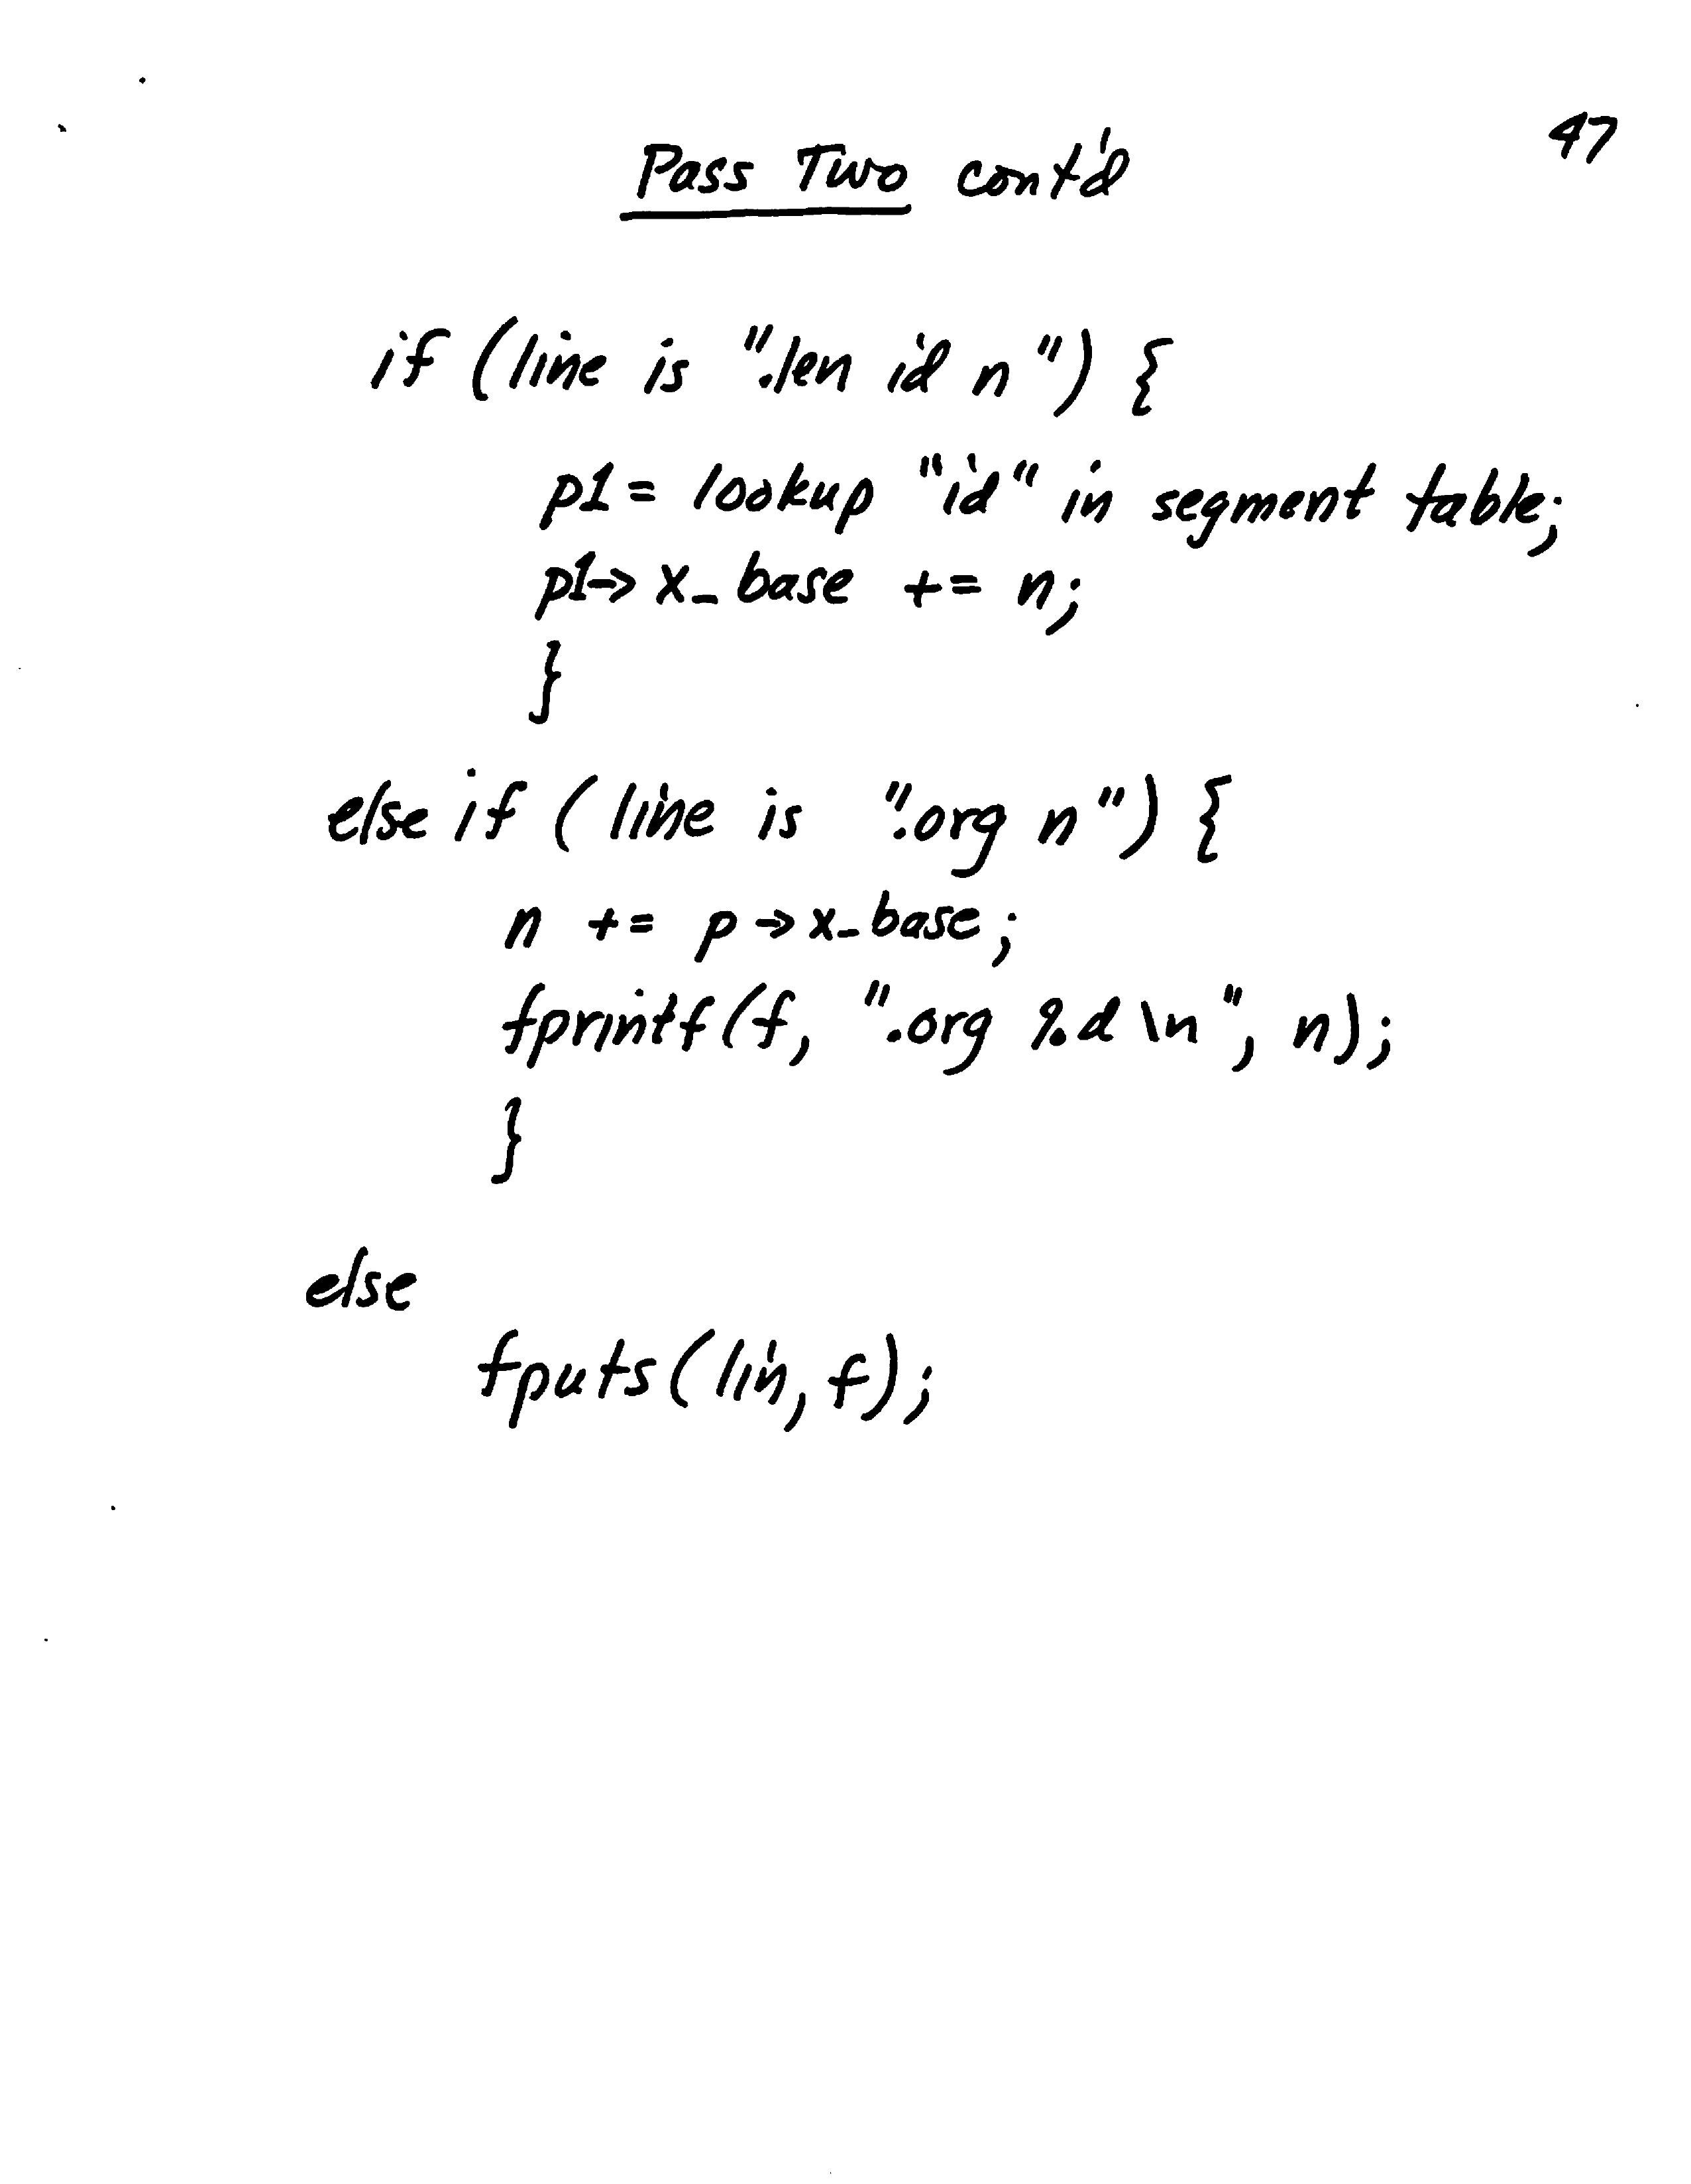 47
Pass Two cont'd
if (line is ".len id n") {
p1 = lookup "id" in segment table;
p1-> x_base += n;
}
else if ( line is ".org n") {
n += p->x_base;
fprintf(f, ".org %d\n", n);
}
else
fputs(lin, f);